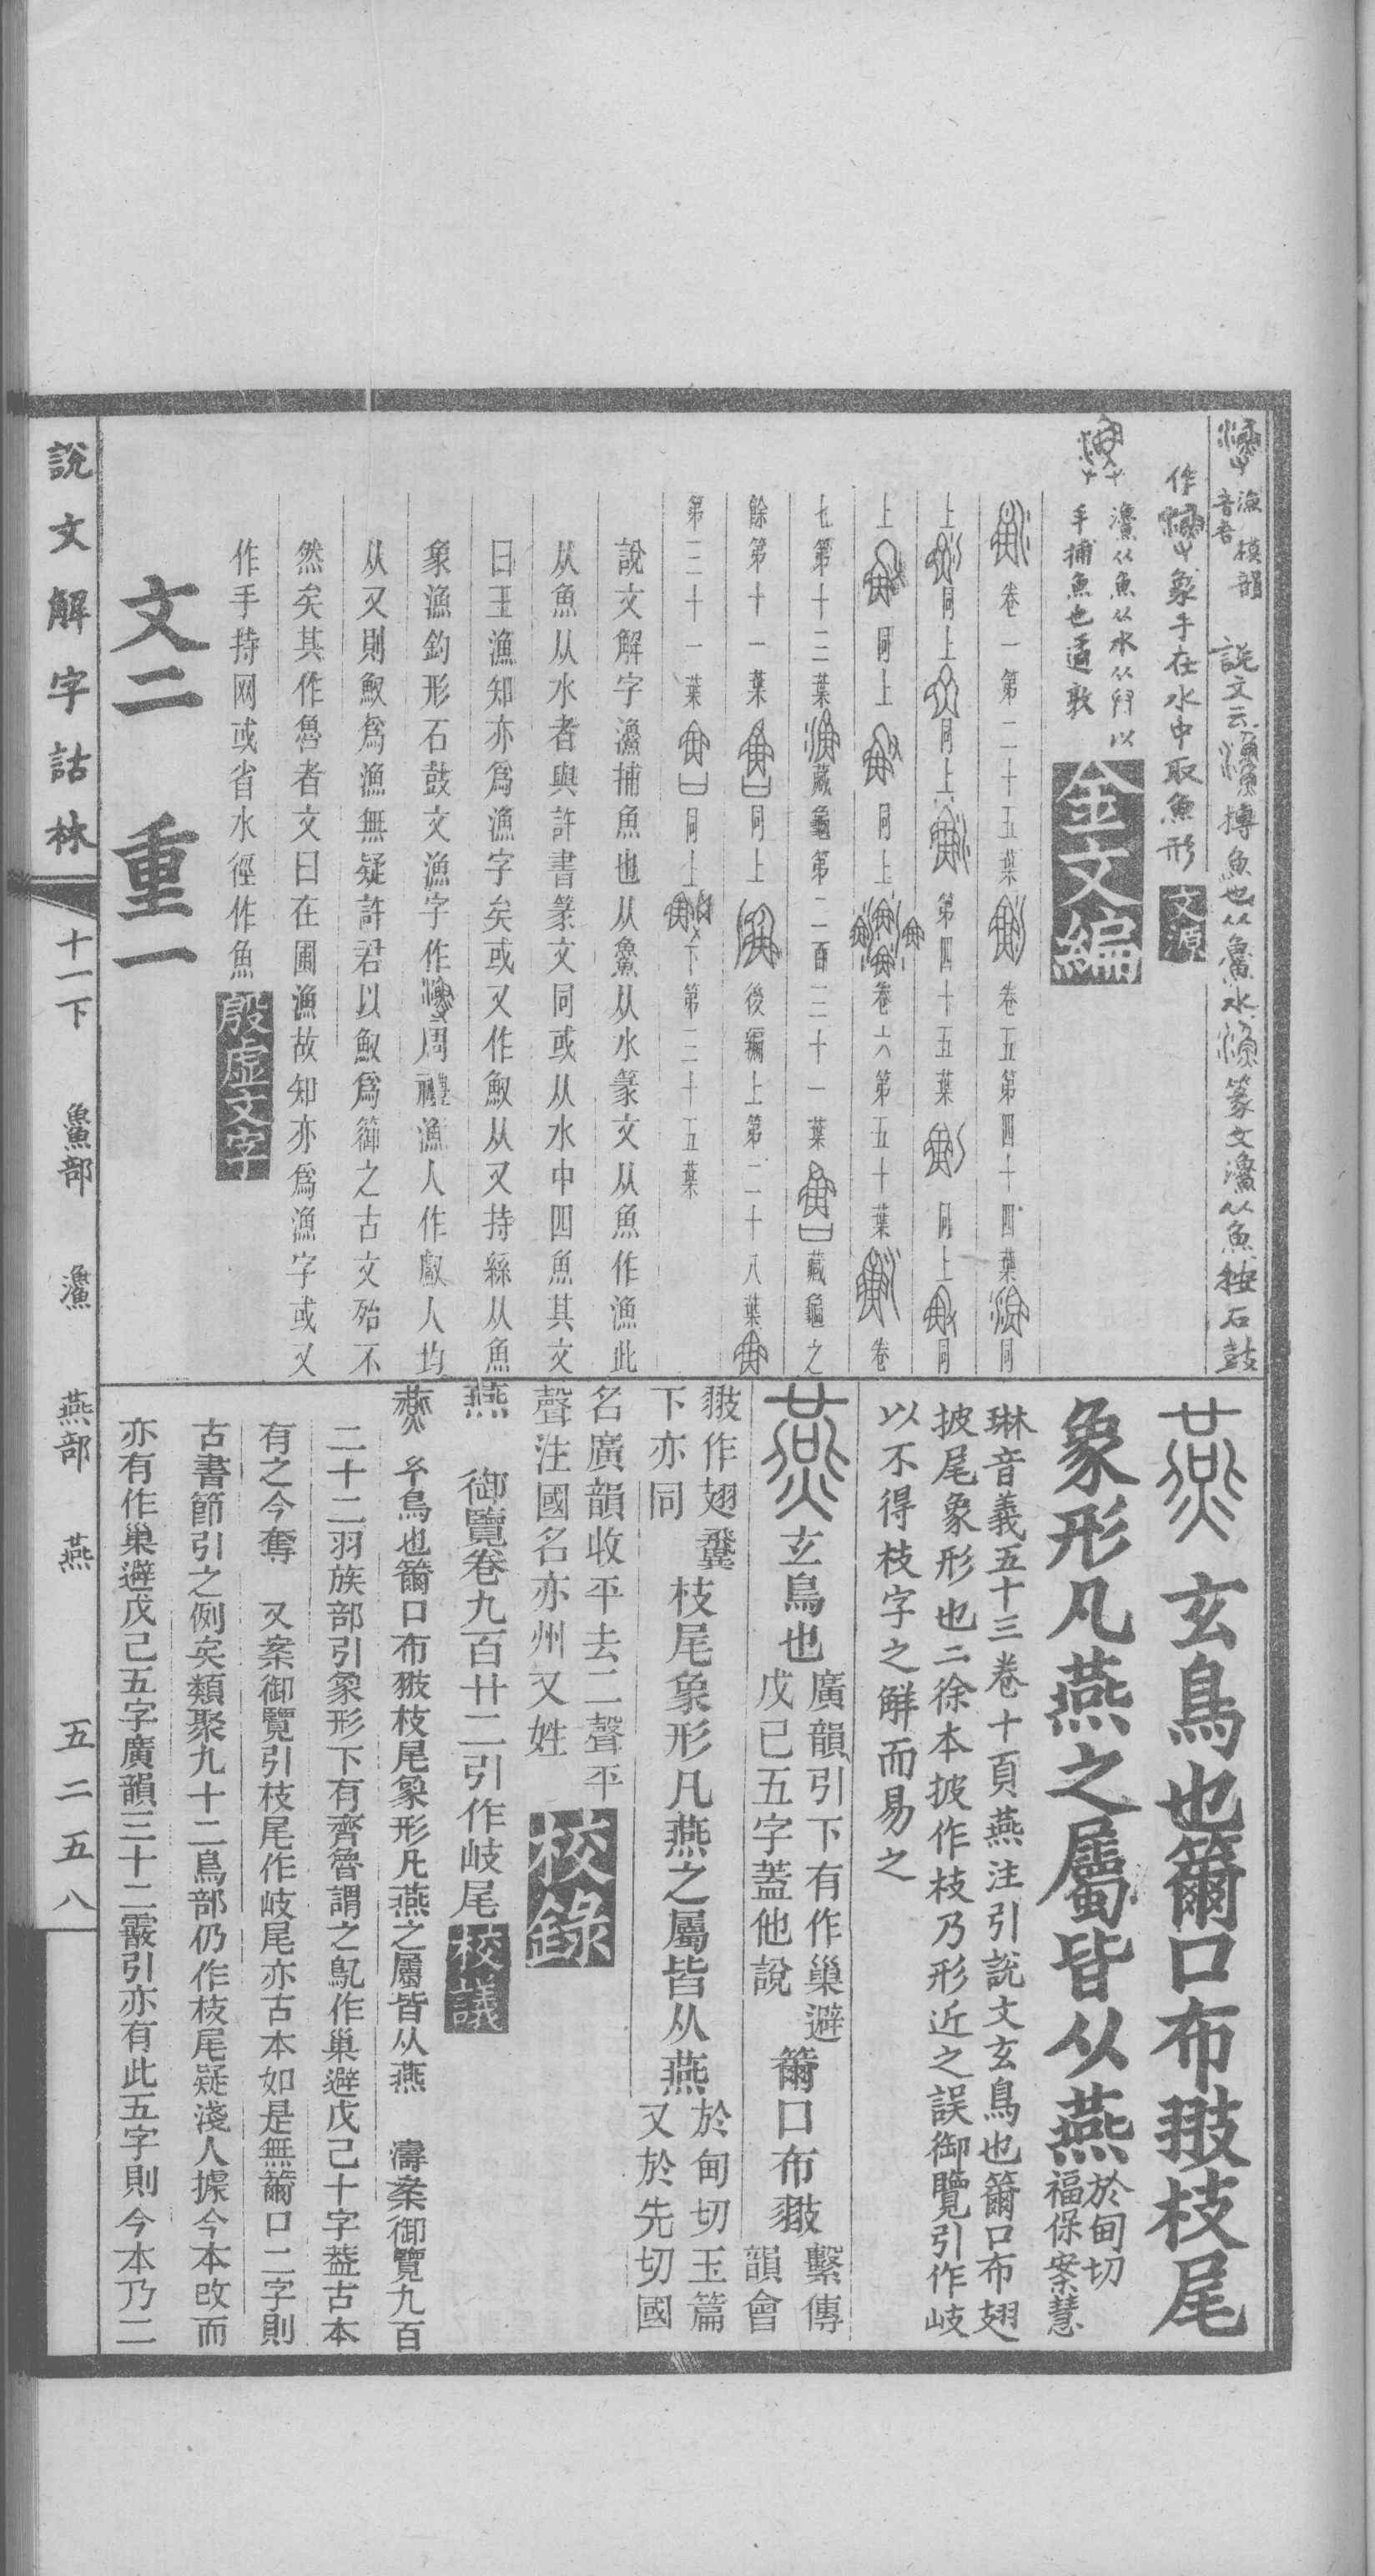 漁音吾 模韻 說文云𤅬搏魚也从䲆水漁篆文𤅬从魚按石鼓
作 象手在水中取魚形 文源
𤅬从魚从水从廾以
手捕魚也遹敦
金文編
卷一第二十五葉 卷五第四十四葉 同
上 同上 同上 第四十五葉 同上 同
上 同上 同上 卷六第五十葉 卷
七第十二葉 藏龜第二百三十一葉 藏龜之
餘第十一葉 同上 後編上第二十八葉
第三十一葉 同上 下第三十五葉
說文解字𤅬捕魚也从䲆从水篆文从魚作漁此
从魚从水者與許書篆文同或从水中四魚其文
曰王漁知亦爲漁字矣或又作䰻从又持絲从魚
象漁釣形石鼓文漁字作 周禮漁人作䱷人均
从又則䰻爲漁無疑許君以䰻爲御之古文殆不
然矣其作魯者文曰在圃漁故知亦爲漁字或又
作手持网或省水徑作魚 殷虛文字
文二 重一
燕 玄鳥也籋口布翄枝尾
象形凡燕之屬皆从燕 於甸切 福保案慧
琳音義五十三卷十頁燕注引說文玄鳥也籋口布翅
披尾象形也二徐本披作枝乃形近之誤御覽引作岐
以不得枝字之解而易之
燕 玄鳥也 廣韻引下有作巢避戊己五字蓋他說 籋口布翄 繫傳韻會
翄作翅䎐下亦同 枝尾象形凡燕之屬皆从燕 於甸切玉篇又於先切國
名廣韻收平去二聲平聲注國名亦州又姓 校錄
燕 御覽卷九百廿二引作岐尾 校議
燕 玄鳥也籋口布翄枝尾象形凡燕之屬皆从燕 濤案御覽九百
二十二羽族部引象形下有齊魯謂之鳦作巢避戊己十字葢古本
有之今奪 又案御覽引枝尾作岐尾亦古本如是無籋口二字則
古書節引之例矣類聚九十二鳥部仍作枝尾疑淺人據今本改而
亦有作巢避戊己五字廣韻三十二霰引亦有此五字則今本乃二
說文解字詁林 十一下 䲆部 𤅬 燕部 燕 五二五八